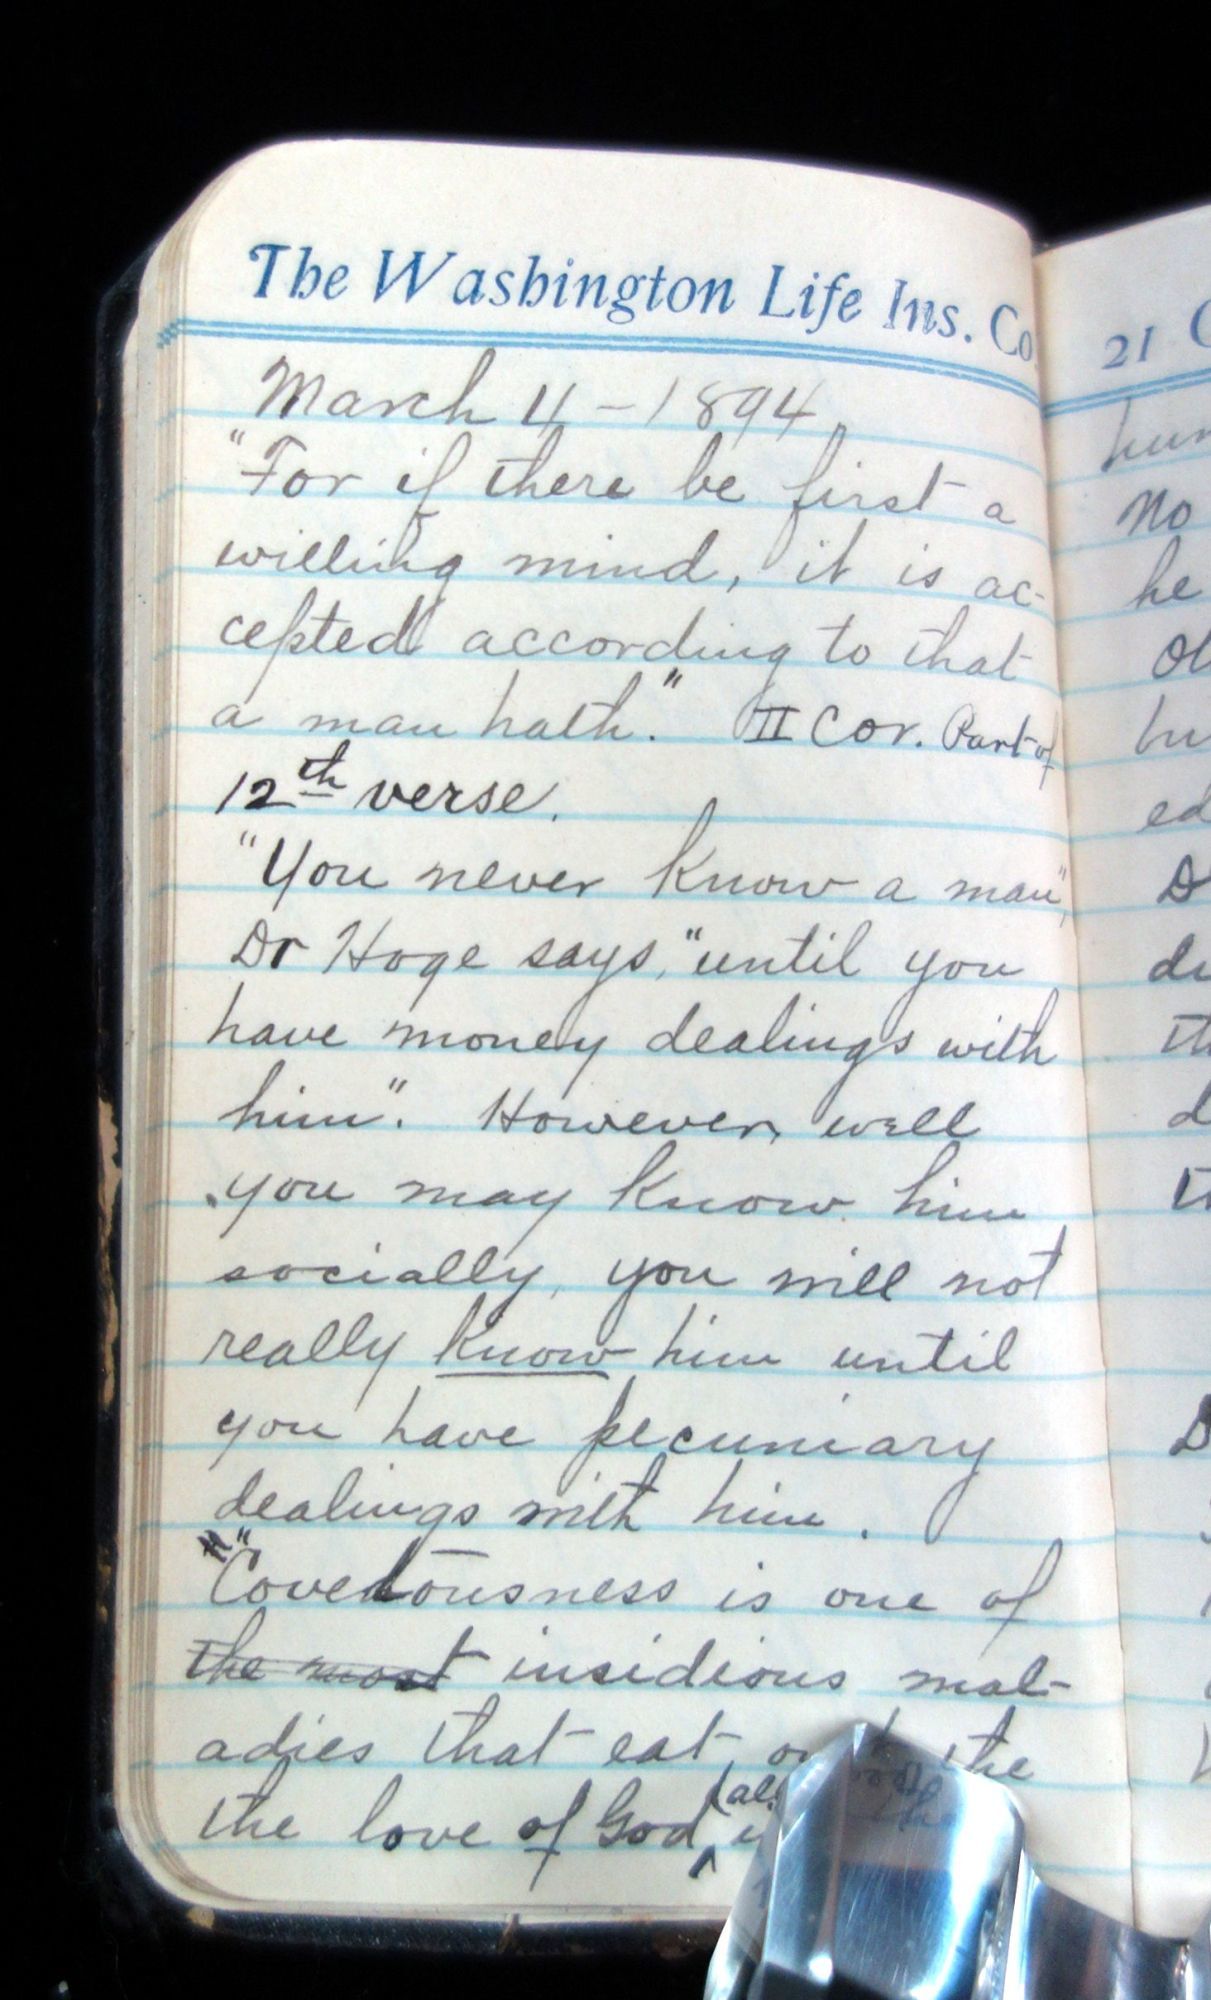 The Washington Life Ins. Co
March 4 - 1894
"For if there be first a
willing mind, it is ac-
cepted according to that
a man hath." II Cor. Part of
12th verse.
"You never know a man",
Dr Hoge says, "until you
have money dealings with
him". However, well
you may know him
socially, you will not
really know him until
you have pecuniary
dealings with him.
"Covetousness is one of
the most insidious mal-
adies that eat the
the love of God
21
hun
no
he